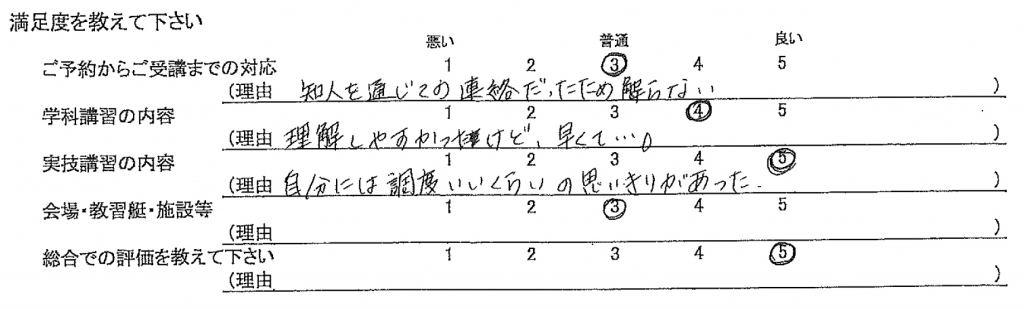 満足度を教えて下さい
悪い 普通 良い
ご予約からご受講までの対応 1 2 3 4 5
(理由 知人を通じての連絡だったため解らない )
学科講習の内容 1 2 3 4 5
(理由 理解しやすかったけど、早くて…。 )
実技講習の内容 1 2 3 4 5
(理由 自分には調度いいくらいの思いきりがあった. )
会場・教習艇・施設等 1 2 3 4 5
(理由 )
総合での評価を教えて下さい 1 2 3 4 5
(理由 )